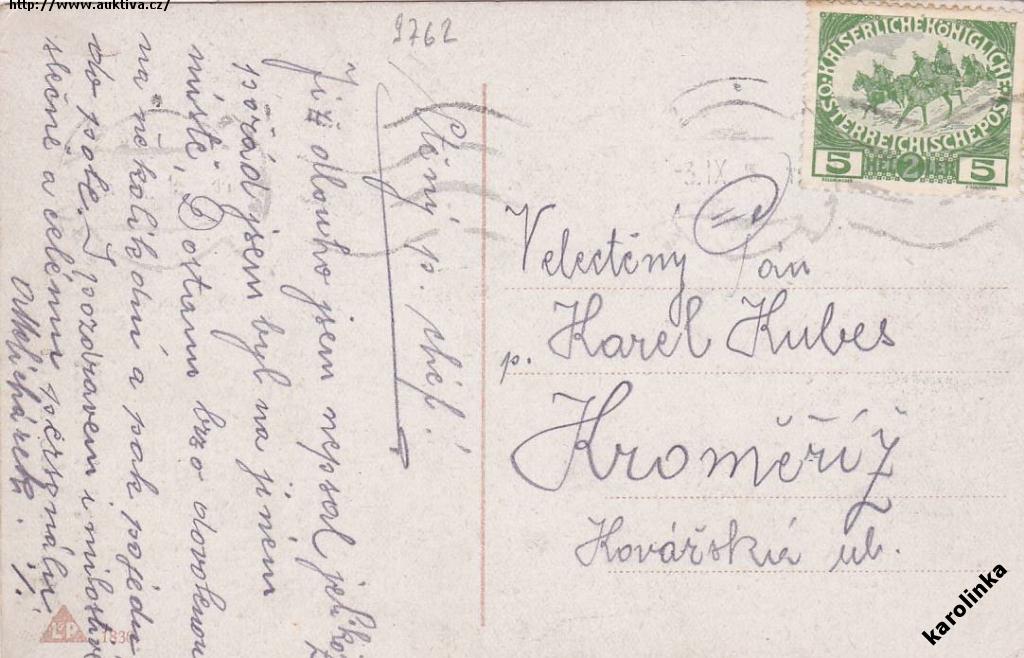 http://www.auktiva.cz/
9762
Ctěný p. chéf!
Již dlouho jsem nepsal
pořád jsem byl na jiném
místě. Dostanu brzo dovolenou
na několik dní a pak pojedu
do pole. S pozdravem i milosti
slečně a celému personálu
KAISERLICHE KÖNIGLICHE
ÖSTERREICHISCHE POST
5 HELLER 2 5
3.IX
Velectěný Pán
p. Karel Kubes
Kroměříž
Kovářská ul.
L&P
1830
karolinka